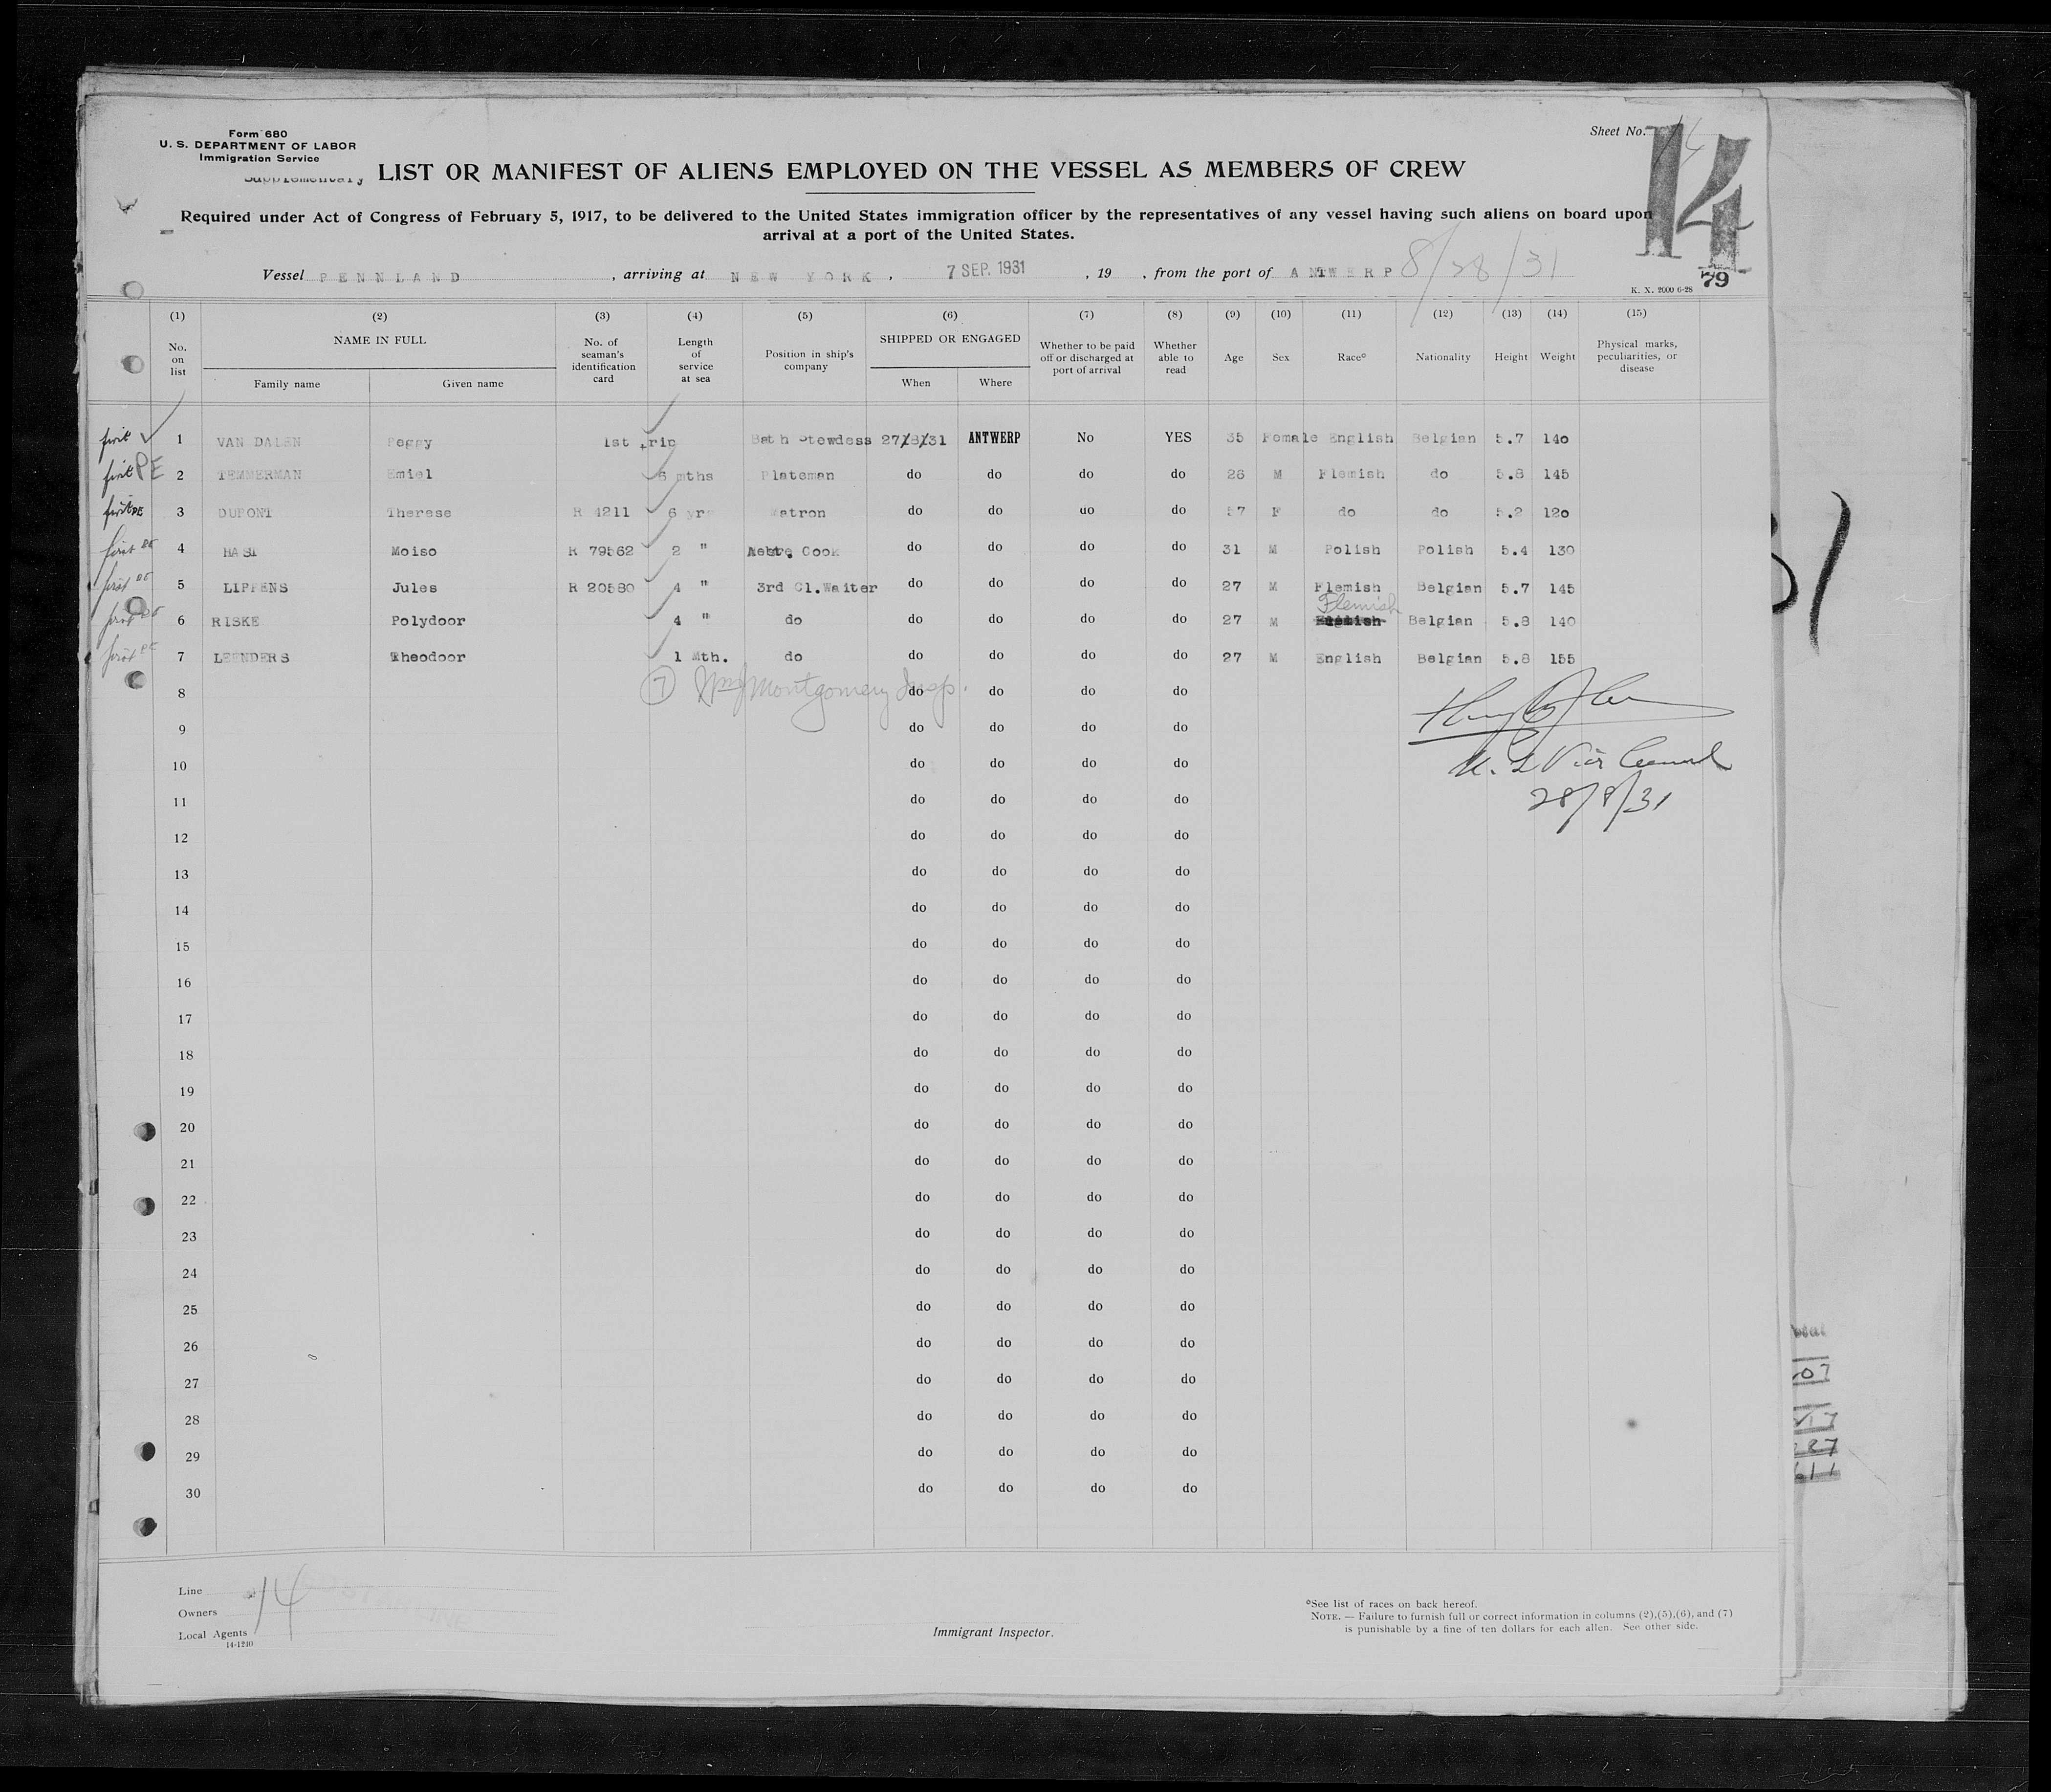 Form 680
U. S. DEPARTMENT OF LABOR
Immigration Service
Supplementary
Sheet No. 14
14
LIST OR MANIFEST OF ALIENS EMPLOYED ON THE VESSEL AS MEMBERS OF CREW
Required under Act of Congress of February 5, 1917, to be delivered to the United States immigration officer by the representatives of any vessel having such aliens on board upon
arrival at a port of the United States.
Vessel PENNLAND, arriving at NEW YORK, 7 SEP. 1931, 19 , from the port of ANTWERP 8/28/31
K. X. 2000 6-28 79
(1) (2) (3) (4) (5) (6) (7) (8) (9) (10) (11) (12) (13) (14) (15)
No. on list NAME IN FULL Family name Given name No. of seaman's identification card Length of service at sea Position in ship's company SHIPPED OR ENGAGED When Where Whether to be paid off or discharged at port of arrival Whether able to read Age Sex Race° Nationality Height Weight Physical marks, peculiarities, or disease
first 1 VAN DALEN Peggy 1st trip Bath Stewdess 27/8/31 ANTWERP No YES 35 Female English Belgian 5.7 140
first PE 2 TEMMERMAN Emiel 6 mths Plateman do do do do 26 M Flemish do 5.8 145
first PE 3 DUPONT Therese R 4211 6 yrs Matron do do do do 57 F do do 5.2 120
first 4 HASI Moiso R 79562 2 " Cook do do do do 31 M Polish Polish 5.4 130
first 5 LIPPENS Jules R 20580 4 " 3rd Cl.Waiter do do do do 27 M Flemish Belgian 5.7 145
first 6 RISKE Polydoor 4 " do do do do do 27 M Flemish Belgian 5.8 140
first PE 7 LEENDERS Theodoor 1 Mth. do do do do do 27 M English Belgian 5.8 155
8 (7) Montgomery Insp. do do do do
9 do do do do
U. S Vice Consul
10 do do do do
28/8/31
11 do do do do
12 do do do do
13 do do do do
14 do do do do
15 do do do do
16 do do do do
17 do do do do
18 do do do do
19 do do do do
20 do do do do
21 do do do do
22 do do do do
23 do do do do
24 do do do do
25 do do do do
26 do do do do
27 do do do do
28 do do do do
29 do do do do
30 do do do do
Line 14
Owners
Local Agents
14-1240
Immigrant Inspector.
°See list of races on back hereof.
NOTE. — Failure to furnish full or correct information in columns (2),(5),(6), and (7)
is punishable by a fine of ten dollars for each alien. See other side.